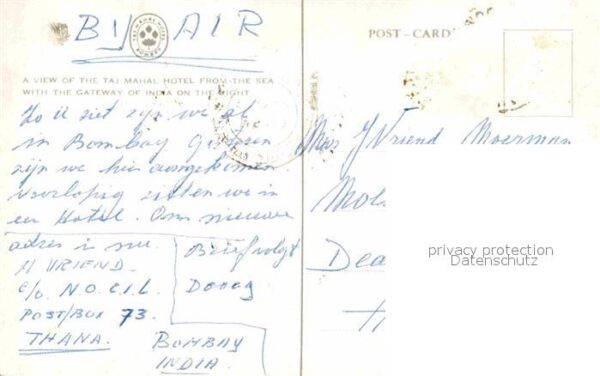 BY AIR
POST-CARD
A VIEW OF THE TAJ MAHAL HOTEL FROM THE SEA
WITH THE GATEWAY OF INDIA ON THE RIGHT
Zo U ziet zijn we al
in Bombay Gisteren
zijn we hier aangekomen
Voorlopig zitten we in
een Hotel. Ons nieuwe
adres is nu.
H VRIEND.
c/o N.O.C.I.L.
POST/BOX 73.
THANA.
BOMBAY
INDIA.
Brief volgt
Daaag
Vriend Moerman
Dea
privacy protection
Datenschutz